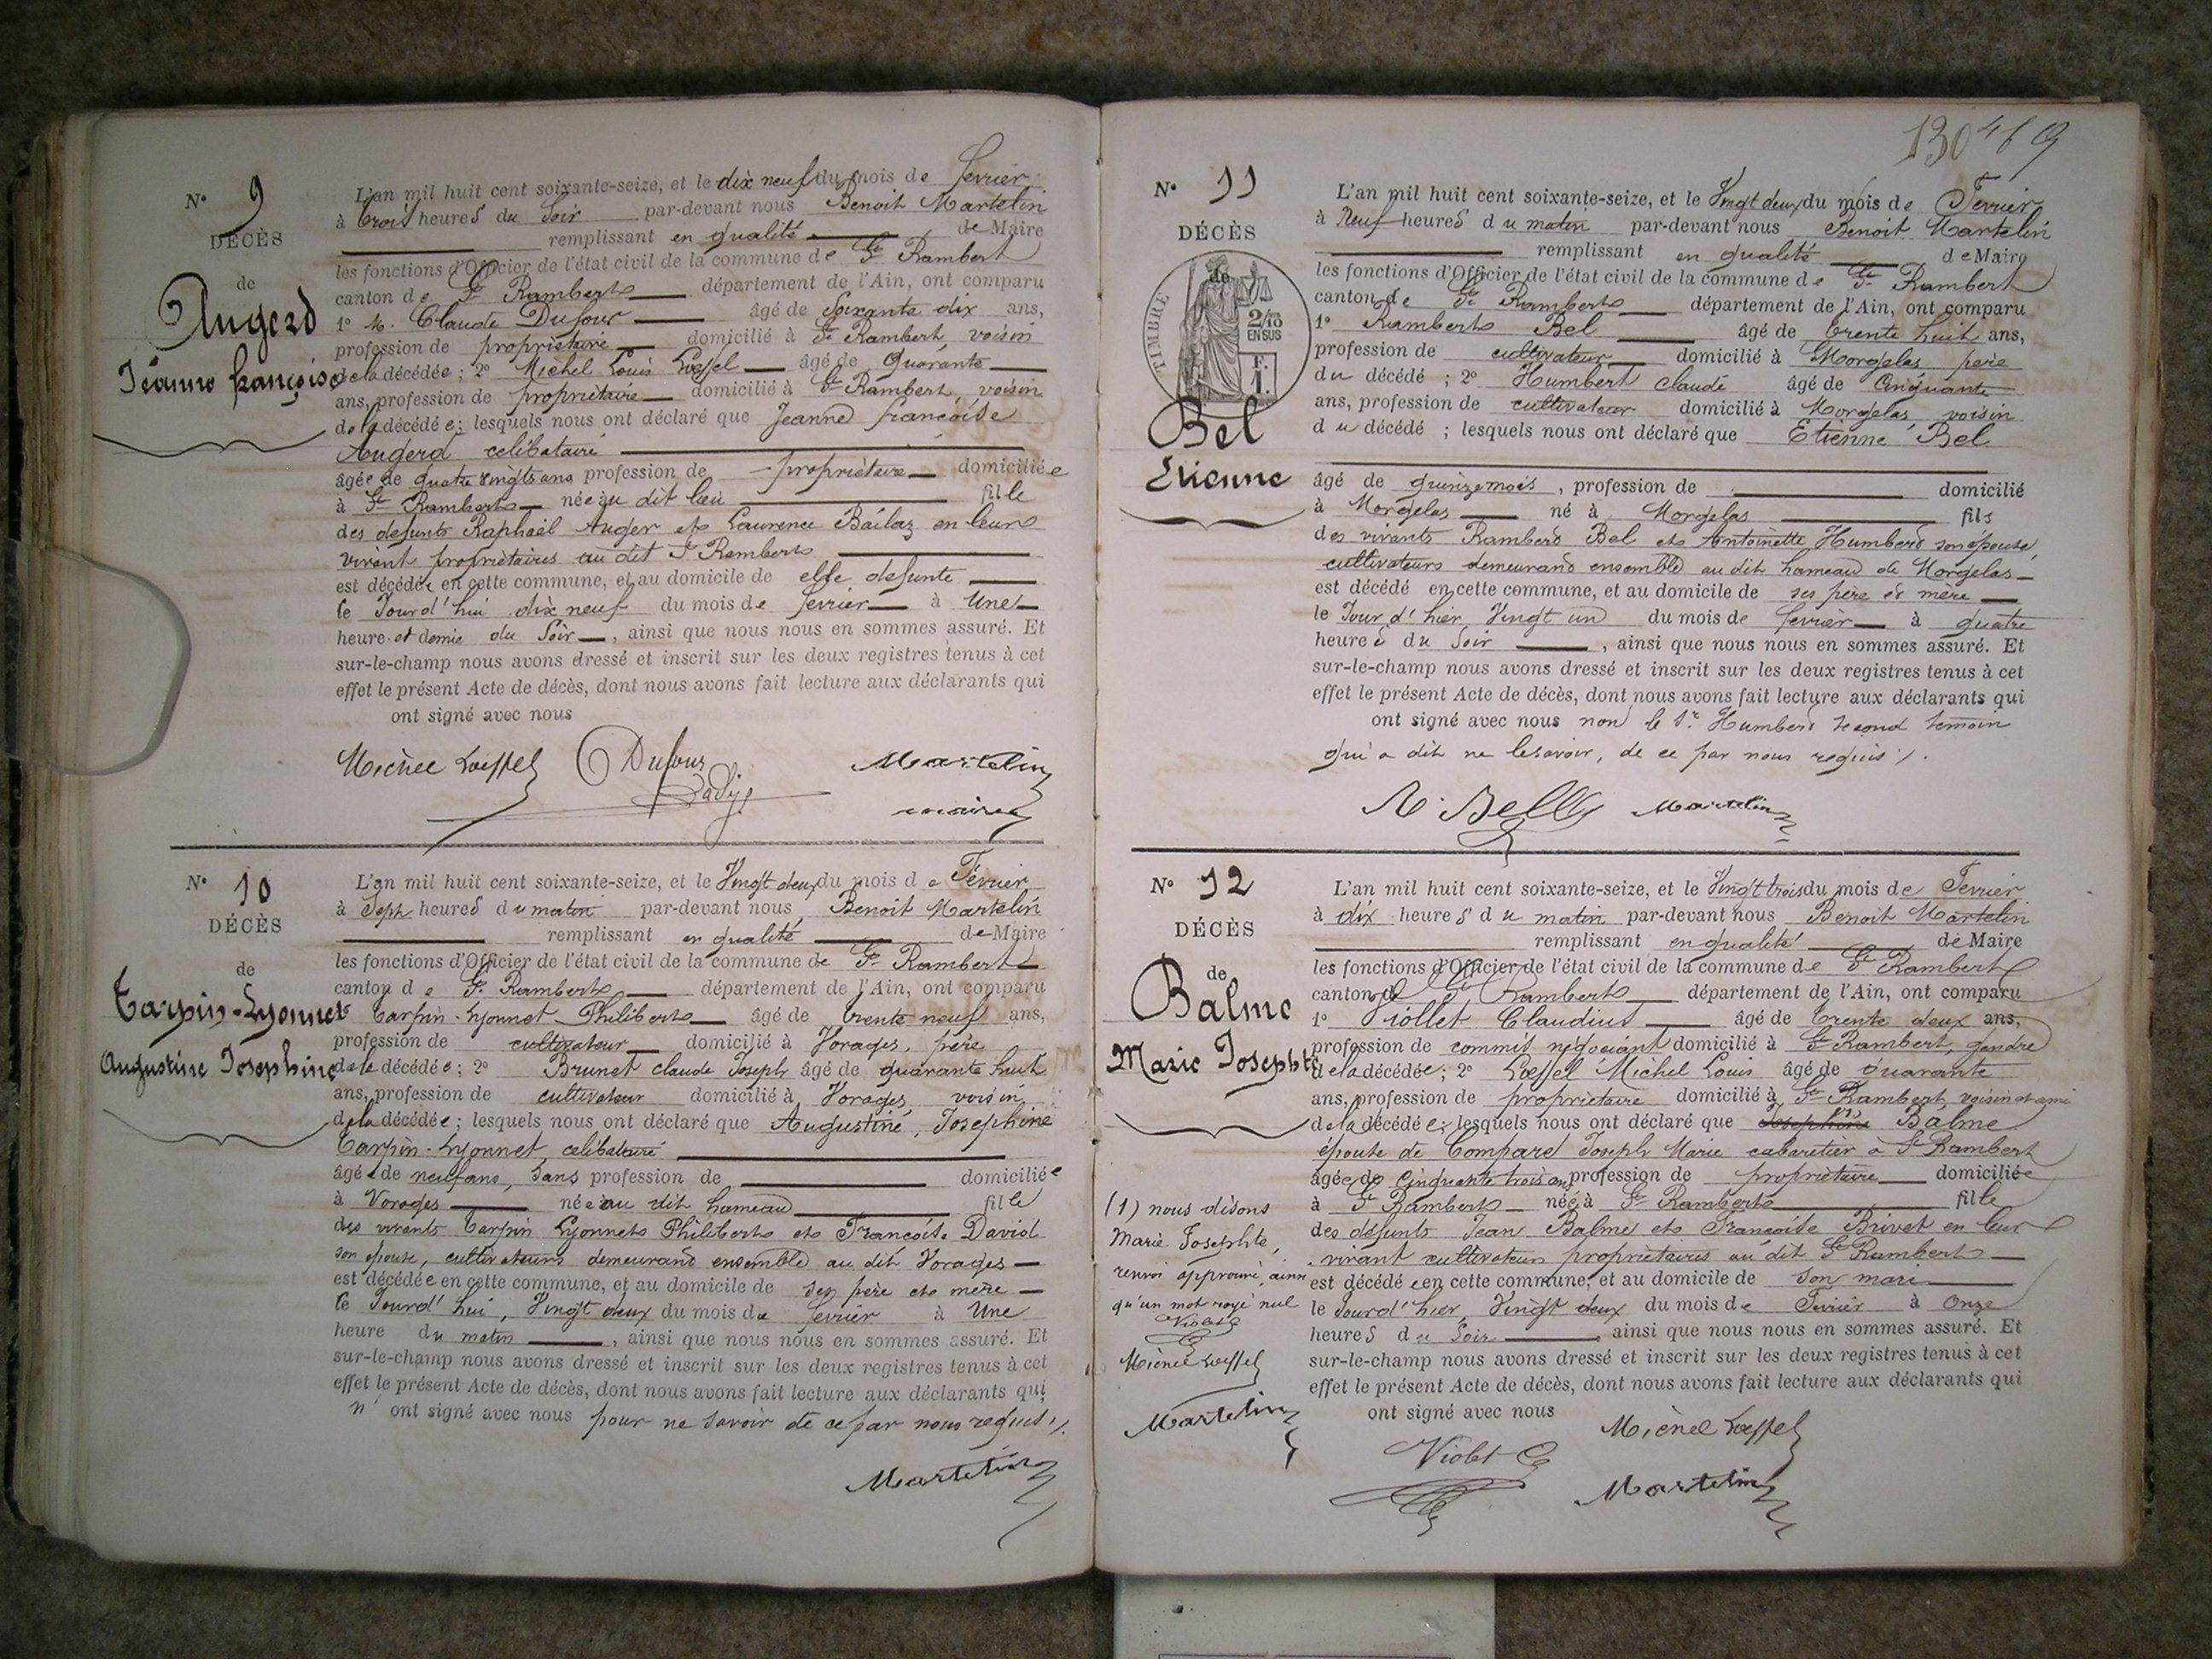 N° 9
DÉCÈS
de
Augerd
Jeanne françoise
L'an mil huit cent soixante-seize, et le dix neuf du mois de fevrier
à trois heures du Soir par-devant nous Benoit Martelin
remplissant en qualité de Maire
les fonctions d'Officier de l'état civil de la commune de St Rambert
canton de St Rambert département de l'Ain, ont comparu
1° M. Claude Dufour âgé de Soixante dix ans,
profession de propriétaire domicilié à St Rambert, voisin
de la décédée; 2° Michel Louis Loeffel âgé de Quarante
ans, profession de propriétaire domicilié à St Rambert, voisin
de la décédée; lesquels nous ont déclaré que Jeanne francoise
Augerd celibataire
âgée de quatre vingts ans profession de propriètaire domiciliée
à St Rambert née au dit lieu fille
des defunts Raphaël Auger et Laurence Bailaz en leur
vivant propriètaires au dit St Rambert
est décédée en cette commune, et au domicile de elle defunte
le Jourd'hui dix neuf du mois de fevrier à Une
heure et demie du Soir, ainsi que nous nous en sommes assuré. Et
sur-le-champ nous avons dressé et inscrit sur les deux registres tenus à cet
effet le présent Acte de décès, dont nous avons fait lecture aux déclarants qui
ont signé avec nous
Michel Loeffel Dufour Martelin
maire
N° 10
DÉCÈS
de
Tarpin-Lyonnet
Augustine Josephine
L'an mil huit cent soixante-seize, et le Vingt deux du mois de Février
à Sept heures du matin par-devant nous Benoit Martelin
remplissant en qualité de Maire
les fonctions d'Officier de l'état civil de la commune de St Rambert
canton de St Rambert département de l'Ain, ont comparu
1° Tarpin-Lyonnet Philibert âgé de trente neuf ans,
profession de cultivateur domicilié à Vorages, père
de la décédée; 2° Brunet claude Joseph âgé de quarante huit
ans, profession de cultivateur domicilié à Vorages voisin
de la décédée; lesquels nous ont déclaré que Augustine, Josephine
Tarpin-Lyonnet, celibataire
âgée de neuf ans, Sans profession de domiciliée
à Vorages née au dit hameau fille
des vivants Tarpin Lyonnet Philibert et Francoise David
son epouse, cultivateurs demeurand ensemble au dit Vorages
est décédée en cette commune, et au domicile de ses père et mère
le Jourd'hui, Vingt deux du mois de fevrier à Une
heure du matin, ainsi que nous nous en sommes assuré. Et
sur-le-champ nous avons dressé et inscrit sur les deux registres tenus à cet
effet le présent Acte de décès, dont nous avons fait lecture aux déclarants qui
n'ont signé avec nous pour ne Savoir de ce par nous requis
Martelin
130
N° 11
DÉCÈS
de
TIMBRE
2/10
EN SUS
Bel
Etienne
L'an mil huit cent soixante-seize, et le Vingt deux du mois de Fevrier
à Neuf heures du matin par-devant nous Benoit Martelin
remplissant en qualité de Maire
les fonctions d'Officier de l'état civil de la commune de St Rambert
canton de St Rambert département de l'Ain, ont comparu
1° Rambert Bel âgé de trente huit ans,
profession de cultivateur domicilié à Morgelas père
du décédé; 2° Humbert claude âgé de Cinquante
ans, profession de cultivateur domicilié à Morgelas voisin
du décédé; lesquels nous ont déclaré que Etienne Bel
âgé de quinze mois, profession de domicilié
à Morgelas né à Morgelas fils
des vivants Rambert Bel et Antoinette Humbert son épouse,
cultivateurs demeurand ensemble au dit hameau de Morgelas
est décédé en cette commune, et au domicile de ses père et mère
le Jour d'hier Vingt un du mois de fevrier à quatre
heures du Soir, ainsi que nous nous en sommes assuré. Et
sur-le-champ nous avons dressé et inscrit sur les deux registres tenus à cet
effet le présent Acte de décès, dont nous avons fait lecture aux déclarants qui
ont signé avec nous non le Sr Humbert second temoin
qui a dit ne le savoir, de ce par nous requis
R. Bel Martelin
N° 12
DÉCÈS
de
Balme
Marie Josephte
L'an mil huit cent soixante-seize, et le Vingt trois du mois de Fevrier
à dix heures du matin par-devant nous Benoit Martelin
remplissant en qualité de Maire
les fonctions d'Officier de l'état civil de la commune de St Rambert
canton de St Rambert département de l'Ain, ont comparu
1° Viollet Claudius âgé de trente deux ans,
profession de commis négociant domicilié à St Rambert, gendre
de la décédée; 2° Loeffel Michel Louis âgé de Quarante
ans, profession de propriétaire domicilié à St Rambert, voisin et ami
de la décédée; lesquels nous ont déclaré que Josephine (1) Balme
épouse de Compard Joseph Marie cabaretier à St Rambert
âgée de cinquante trois ans profession de propriètaire domiciliée
à St Rambert née à St Rambert fille
des défunts Jean Balme et Francoise Brivet en leur
vivant cultivateurs propriètaires au dit St Rambert
est décédée en cette commune, et au domicile de Son mari
le Jourd'hier, Vingt deux du mois de Fevrier à Onze
heures du Soir, ainsi que nous nous en sommes assuré. Et
sur-le-champ nous avons dressé et inscrit sur les deux registres tenus à cet
effet le présent Acte de décès, dont nous avons fait lecture aux déclarants qui
ont signé avec nous
Michel Loeffel
Violet C
Martelin
(1) nous disons
Marie Josephte,
renvoi approuvé, ainsi
qu'un mot rayé nul
Violet C
Michel Loeffel
Martelin